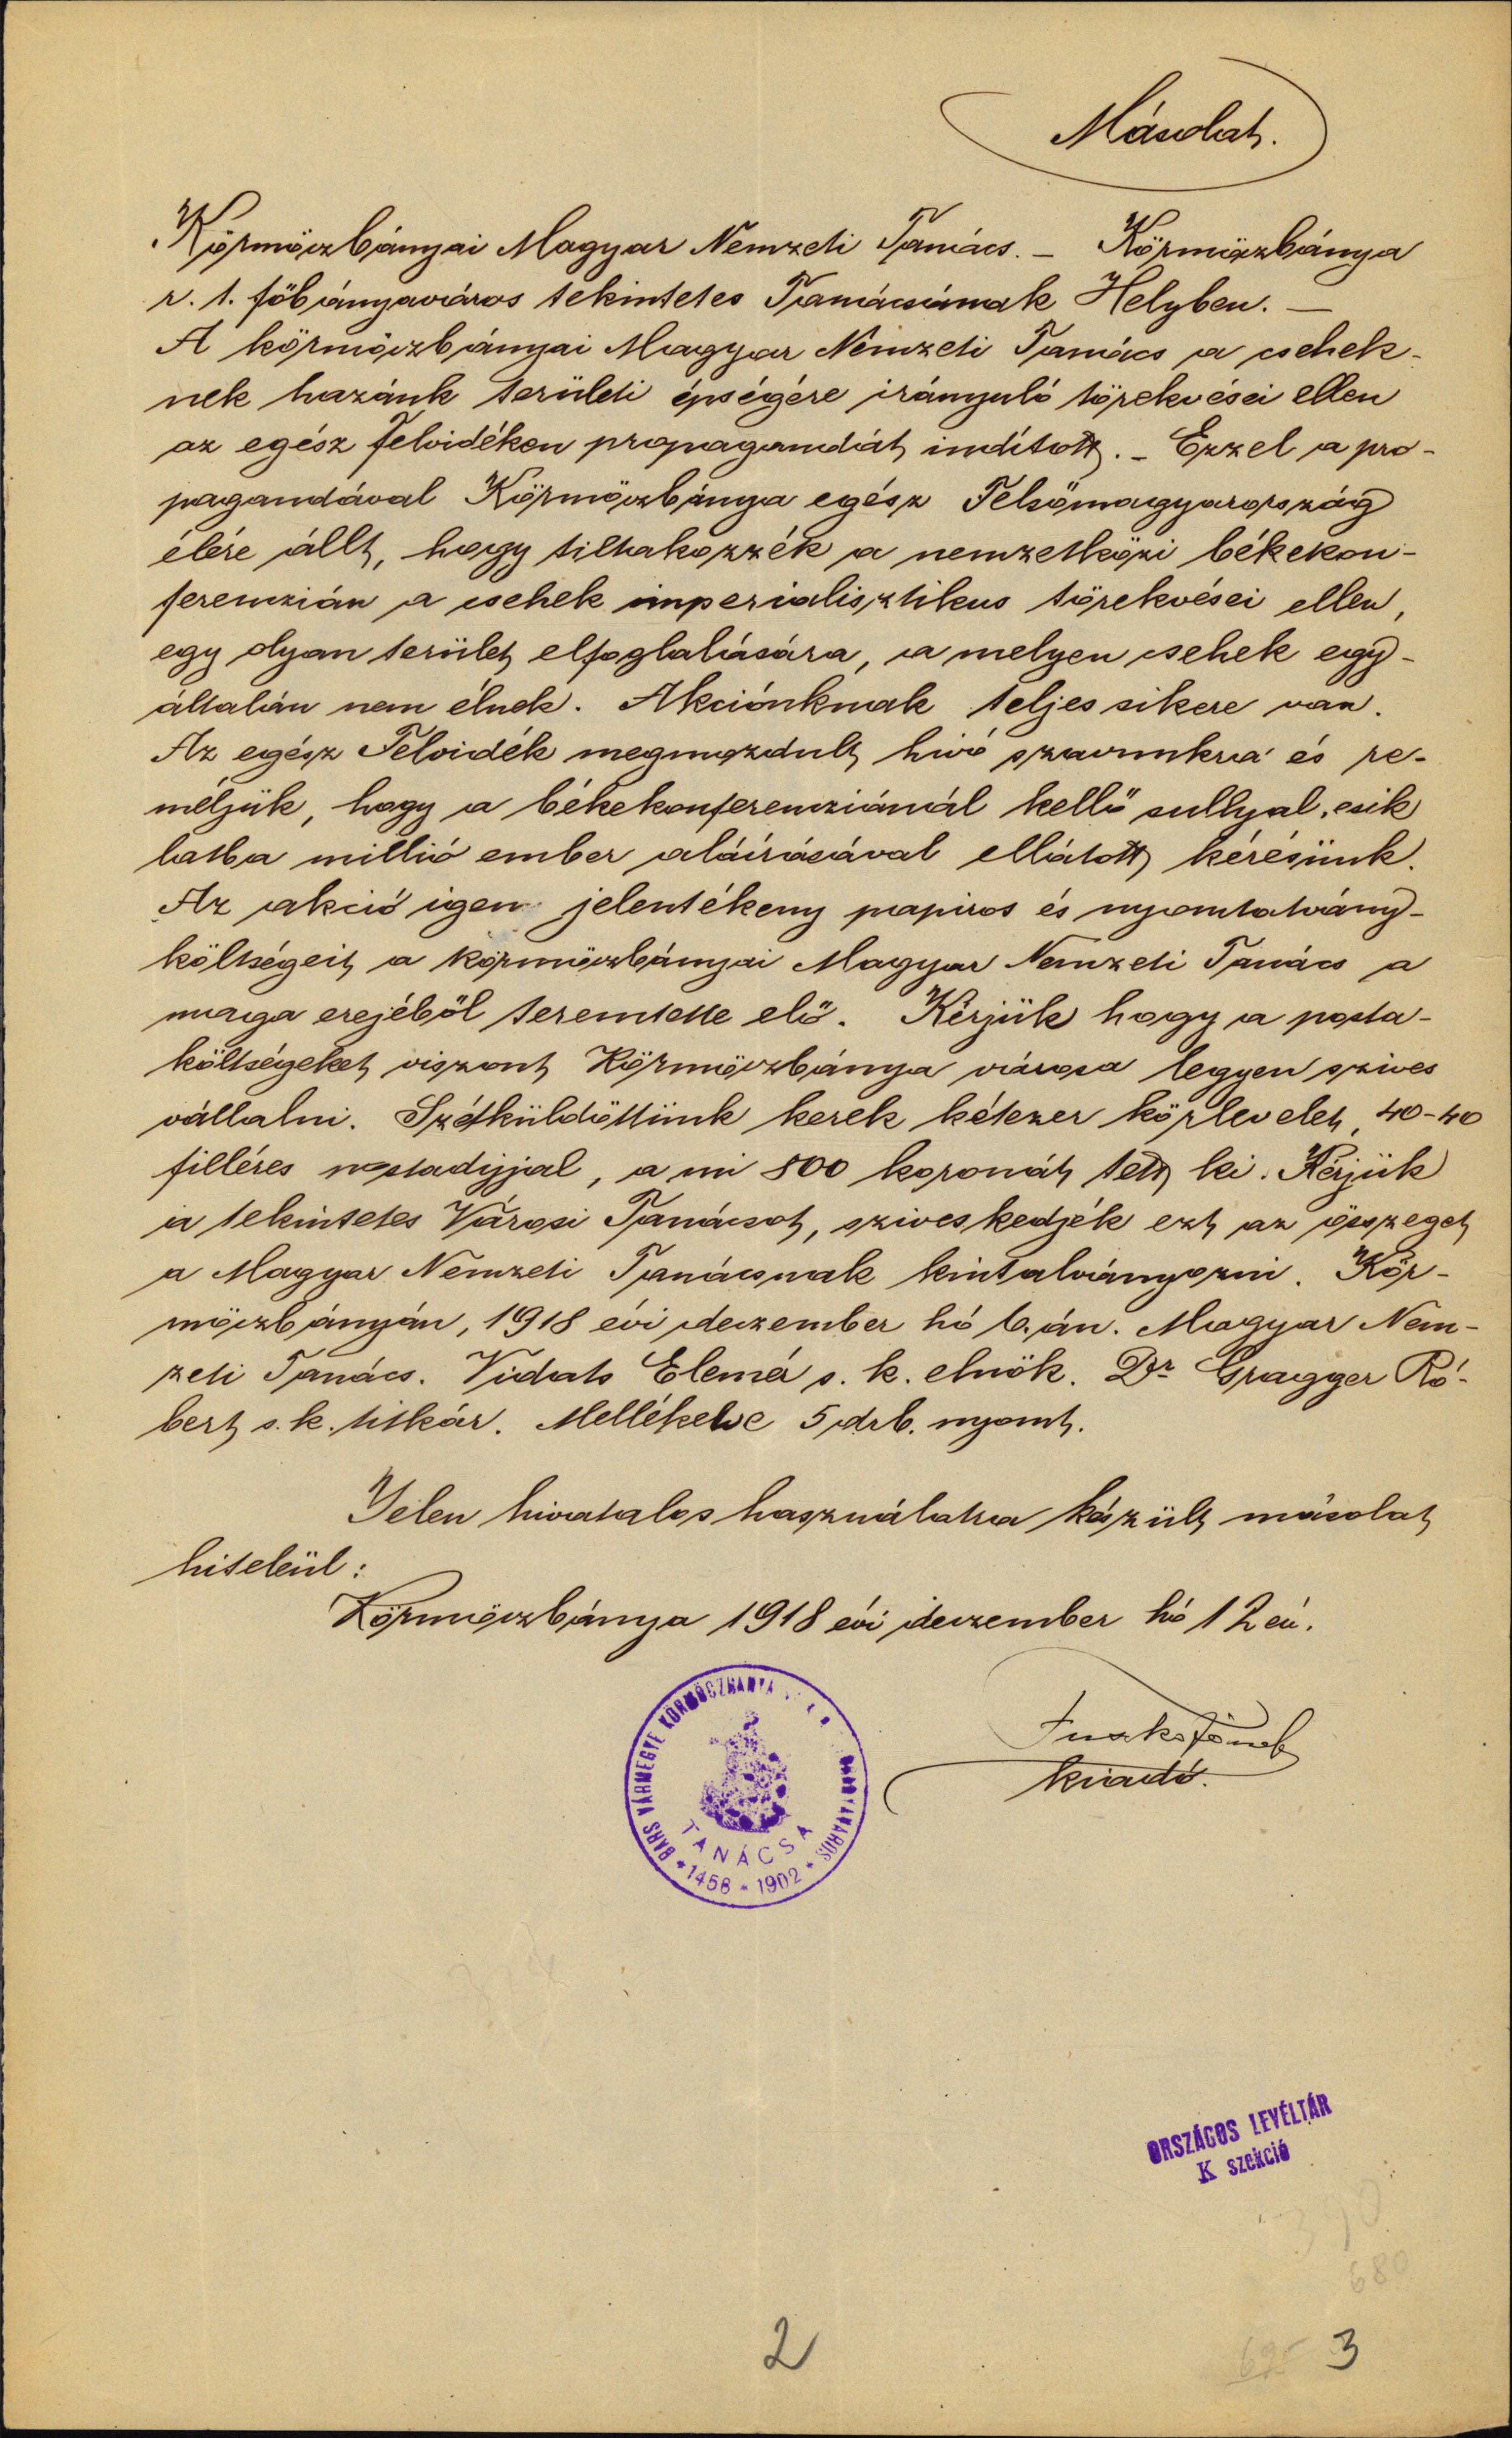 Másolat.
Körmöczbányai Magyar Nemzeti Tanács. – Körmöczbánya
r. t. főbányaváros tekintetes Tanácsának Helyben. –
A körmöczbányai Magyar Nemzeti Tanács a csehek-
nek hazánk területi épségére irányuló törekvései ellen
az egész Felvidéken propagandát indított. – Ezzel a pro-
pagandával Körmöczbánya egész Felsőmagyarország
élére állt, hogy tiltakozzék a nemzetközi békekon-
ferenzián a csehek imperialisztikus törekvései ellen,
egy olyan terület elfoglalására, a melyen csehek egy-
általán nem élnek. Akciónknak teljes sikere van.
Az egész Felvidék megmozdult hivó szavunkra és re-
méljük, hogy a békekonferenziánál kellő sullyal esik
latba millió ember aláírásával ellátott kérésünk.
Az akció igen jelentékeny papiros és nyomtatvány-
költségeit a körmöczbányai Magyar Nemzeti Tanács a
maga erejéből teremtette elő. Kérjük hogy a posta-
költségeket viszont Körmöczbánya városa legyen szives
vállalni. Szétküldöttünk kerek kétezer körlevelet, 40-40
filléres postadijjal, a mi 800 koronát tett ki. Kérjük
a tekintetes Városi Tanácsot, sziveskedjék ezt az összeget
a Magyar Nemzeti Tanácsnak kiutalványozni. Kör-
möczbányán, 1918 évi deczember hó 6.án. Magyar Nem-
zeti Tanács. Vidats Elemér s. k. elnök. Dr Gragger Ró-
bert s. k. titkár. Mellékelve 5 drb. nyomt.
Jelen hivatalos használatra készült másolat
hiteléül:
Körmöczbánya 1918 évi deczember hó 12 én.
kiadó.
BARS VÁRMEGYE KÖRMÖCZBÁNYA
BÁNYAVÁROS
TANÁCSA
* 1458 * 1902 *
ORSZÁGOS LEVÉLTÁR
K szekció
390
680
2
695 3